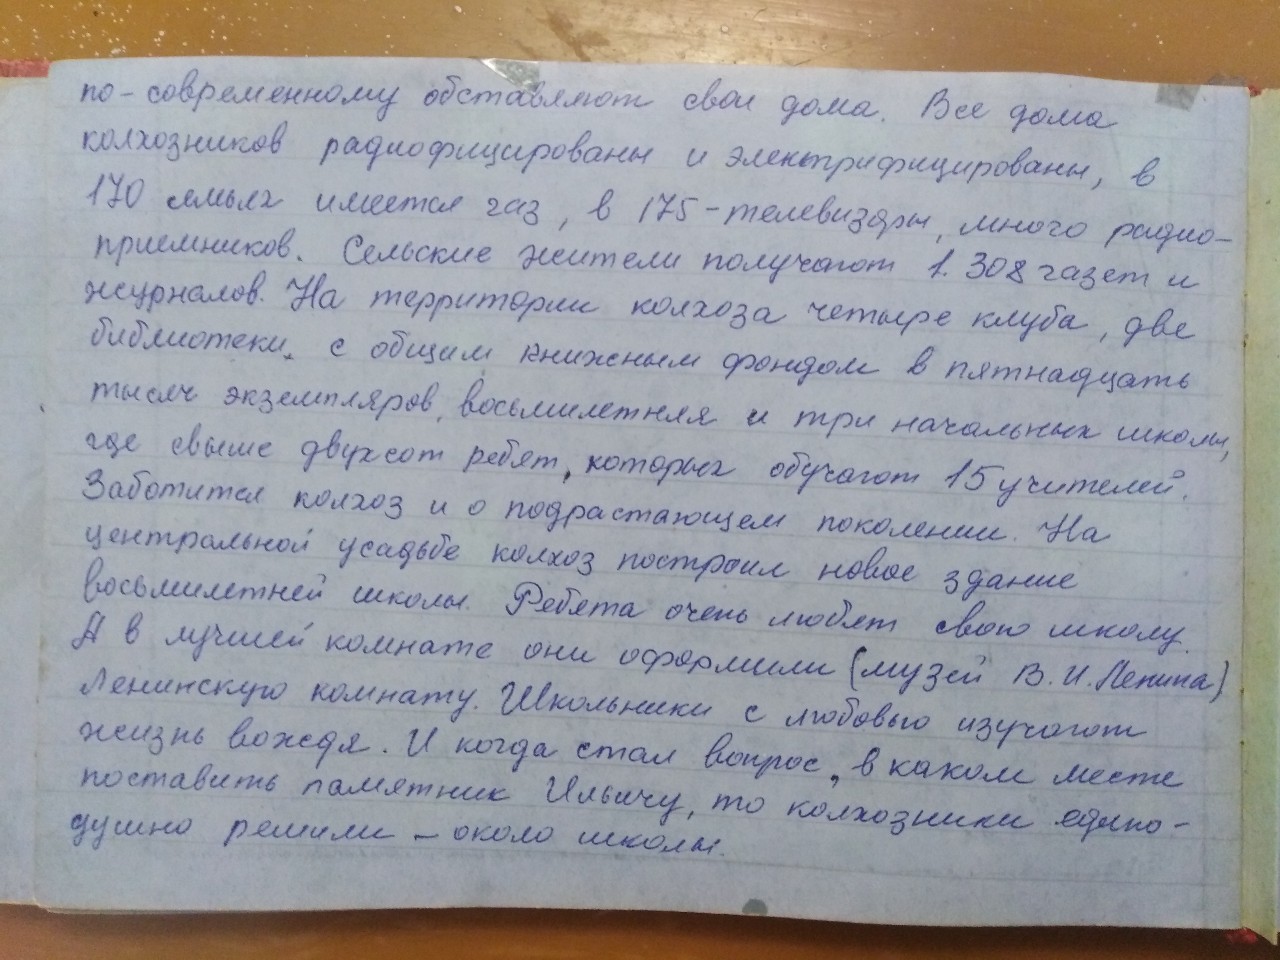 по-современному обставляют свои дома. Все дома
колхозников радиофицированы и электрифицированы, в
170 семьях имеется газ, в 175 - телевизоры, много радио-
приемников. Сельские жители получают 1.308 газет и
журналов. На территории колхоза четыре клуба, две
библиотеки, с общим книжным фондом в пятнадцать
тысяч экземпляров, восьмилетняя и три начальных школы,
где свыше двухсот ребят, которых обучают 15 учителей.
Заботится колхоз и о подрастающем поколении. На
центральной усадьбе колхоз построил новое здание
восьмилетней школы. Ребята очень любят свою школу.
А в лучшей комнате они оформили (музей В.И.Ленина)
Ленинскую комнату. Школьники с любовью изучают
жизнь вождя. И когда стал вопрос, в каком месте
поставить памятник Ильичу, то колхозники едино-
душно решили - около школы.